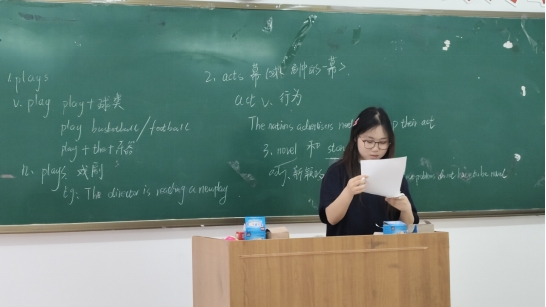 1. plays
v. play play + 球类
play basketball / football
play + the + 乐器
n. plays 戏剧
eg: The director is reading a new play
2. acts 幕 (戏剧中的一幕)
act v. 行为
The nations advertisers need their act
3. novel 和
adj. 新颖的 problems do not have to be novel